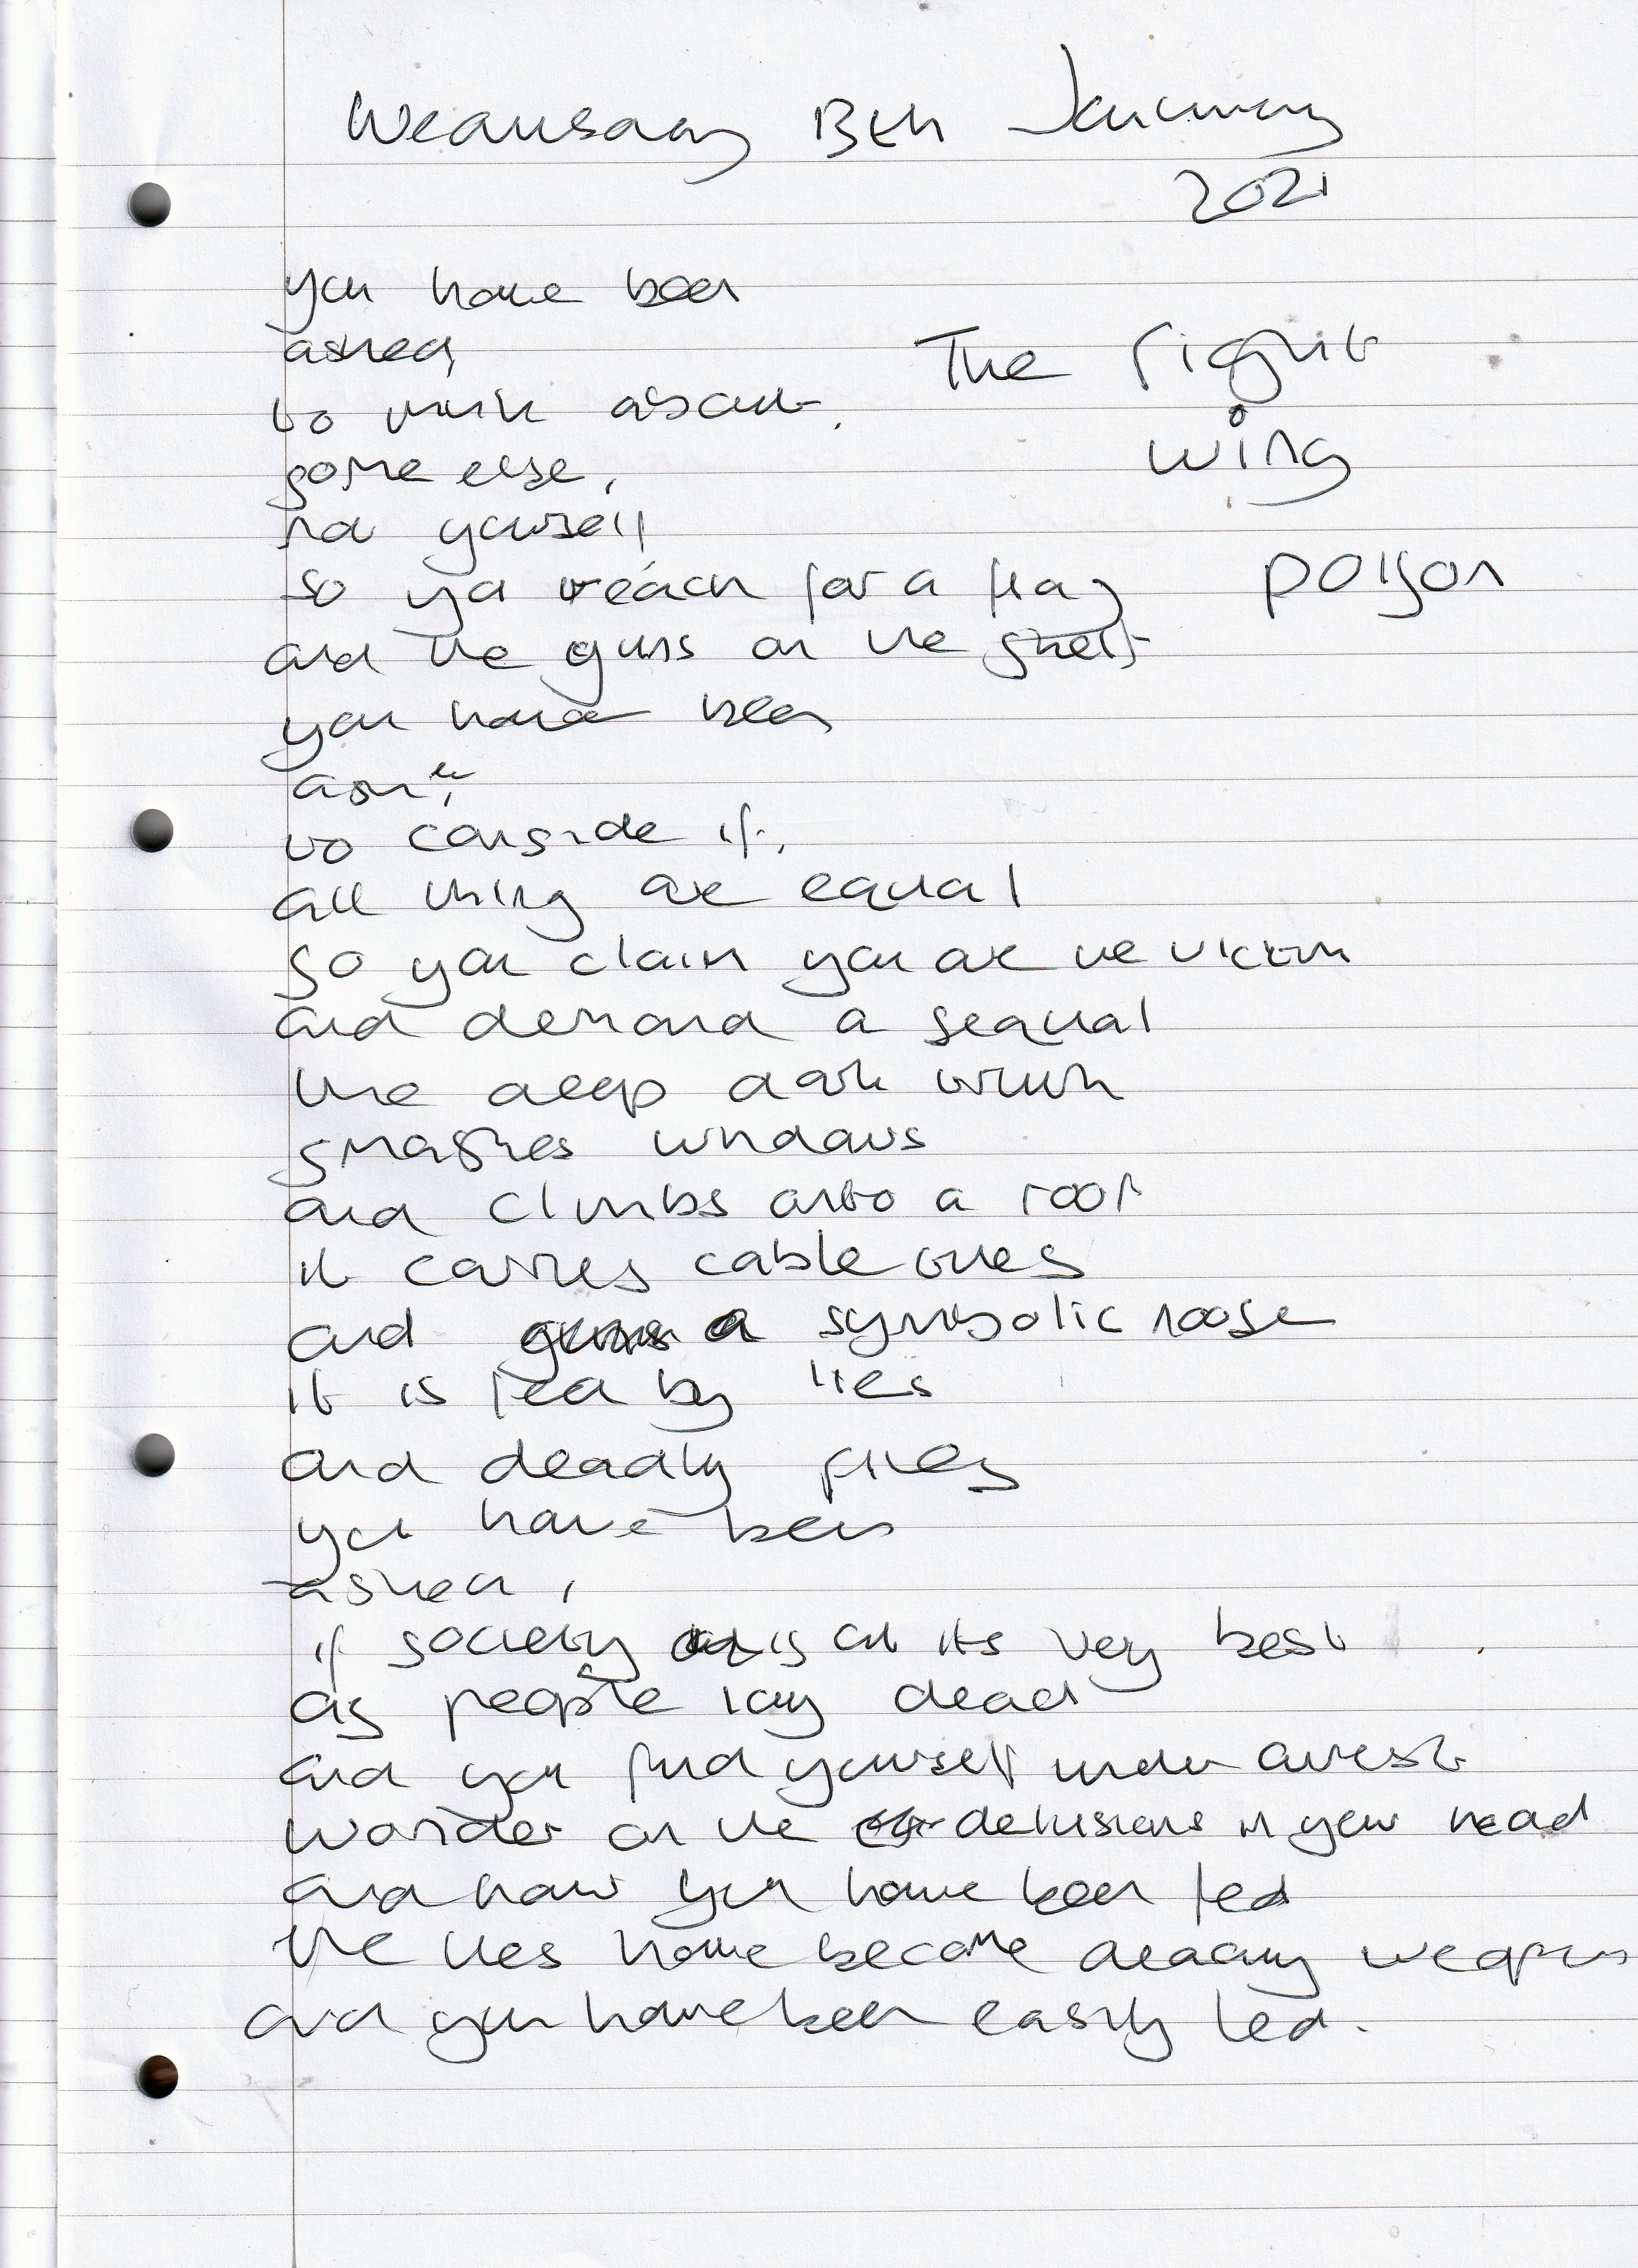 Wednesday 13th January
2021
The right
wing
poison
you have been
asked,
to think about,
some else,
not yourself
so you reach for a flag
and the guns on the shelf
you have been
asked,
to conside if,
all thing are equal
so you claim you are the victim
and demand a sequal
the deep dark truth
smashes windows
and climbs onto a roof
it carries cable ties
and a symbolic noose
it is fed by lies
and deadly
you have been
asked,
if society is at its very best
as people lay dead
and you find yourself under arrest
wonder on the delusions in your head
and how you have been fed
the lies have become deadly weapons
and you have been easily led.